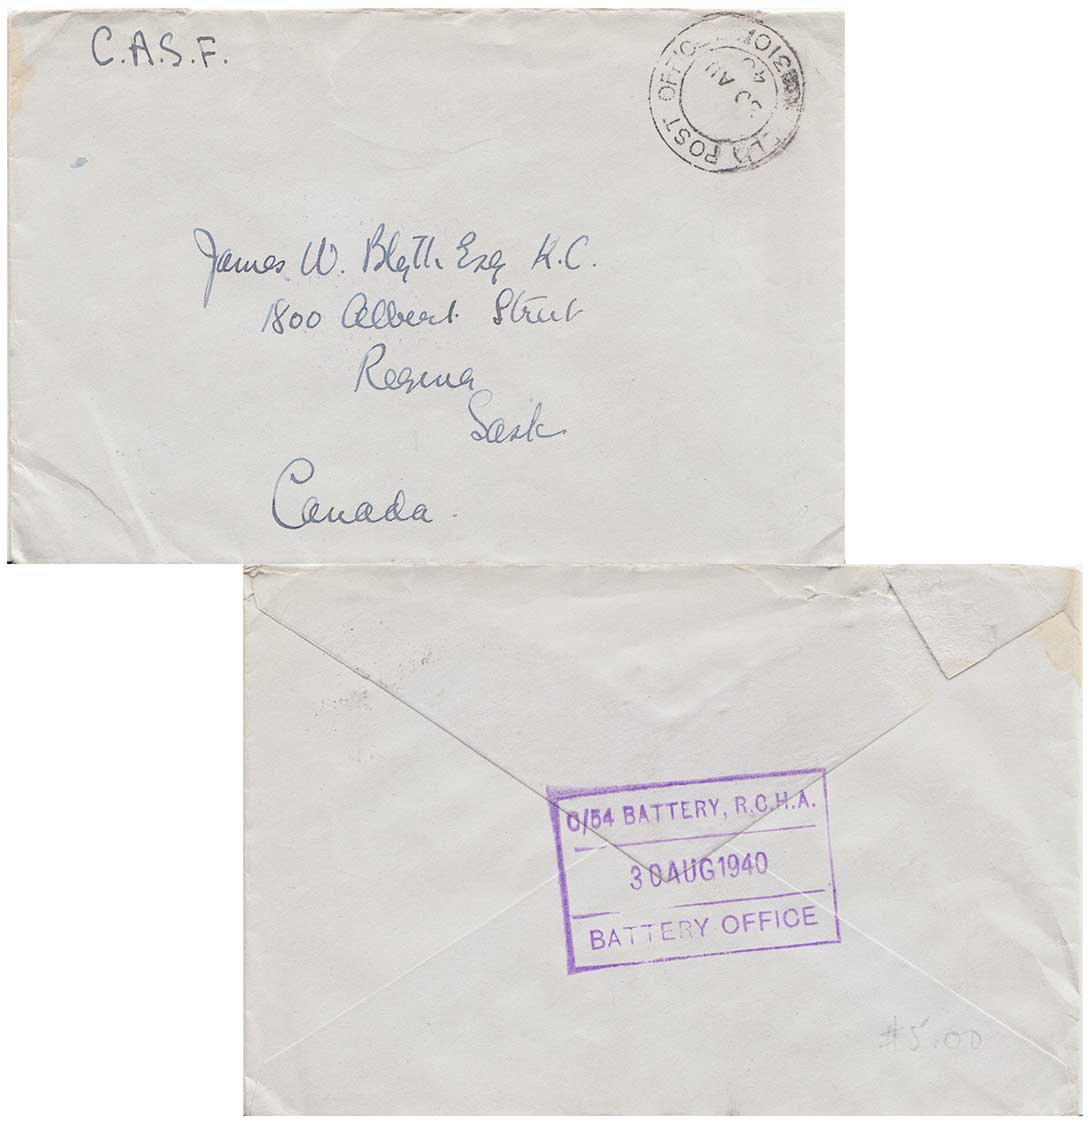 C.A.S.F.
FIELD POST OFFICE
30 AU
40
James W. Blyth Esq K.C.
1800 Albert Street
Regina
Sask
Canada.
C/54 BATTERY, R.C.H.A.
30 AUG 1940
BATTERY OFFICE
$5.00